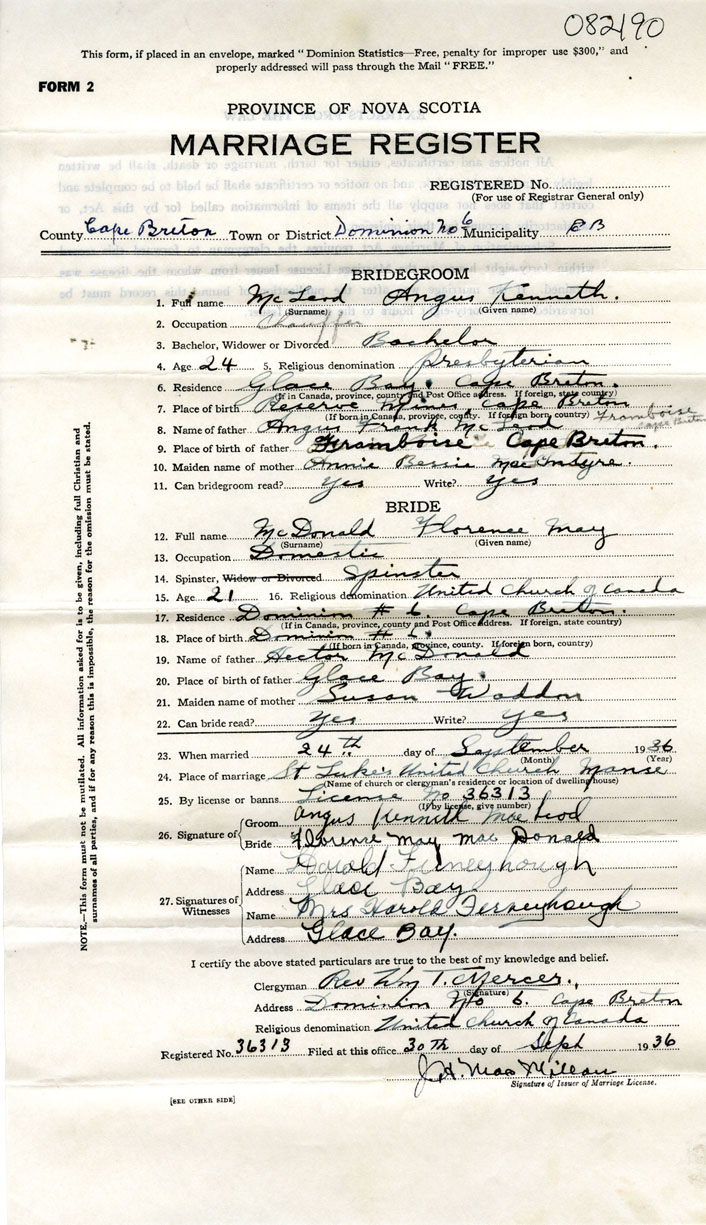 082190
This form, if placed in an envelope, marked "Dominion Statistics—Free, penalty for improper use $300," and
properly addressed will pass through the Mail "FREE."
FORM 2
PROVINCE OF NOVA SCOTIA
MARRIAGE REGISTER
REGISTERED No.
(For use of Registrar General only)
County Cape Breton Town or District Dominion No 6 Municipality C B
BRIDEGROOM
1. Full name McLeod Angus Kenneth.
(Surname) (Given name)
2. Occupation Chauffer
3. Bachelor, Widower or Divorced Bachelor
4. Age 24 5. Religious denomination Presbyterian
6. Residence Glace Bay. Cape Breton.
(If in Canada, province, county and Post Office address. If foreign, state country)
7. Place of birth Reserve Mines, Cape Breton
(If born in Canada, province, county. If foreign born, country)
8. Name of father Angus Frank McLeod Framboise Cape Breton
9. Place of birth of father Framboise Cape Breton.
10. Maiden name of mother Annie Bessie MacIntyre.
11. Can bridegroom read? Yes Write? Yes
BRIDE
12. Full name McDonald Florence May
(Surname) (Given name)
13. Occupation Domestic
14. Spinster, Widow or Divorced Spinster
15. Age 21 16. Religious denomination United Church of Canada
17. Residence Dominion # 6. Cape Breton.
(If in Canada, province, county and Post Office address. If foreign, state country)
18. Place of birth Dominion # 6.
(If born in Canada, province, county. If foreign born, country)
19. Name of father Hector McDonald
20. Place of birth of father Glace Bay.
21. Maiden name of mother Susan Waddon
22. Can bride read? Yes Write? Yes
23. When married 24th day of September 1936
(Month) (Year)
24. Place of marriage St Luke's United Church Manse
(Name of church or clergyman's residence or location of dwelling house)
25. By license or banns License No 36313
(If by license, give number)
26. Signature of Groom Angus Kenneth MacLeod
Bride Florence May MacDonald
27. Signatures of Witnesses
Name Harold Ferneyhough
Address Glace Bay
Name Mrs Harold Ferneyhough
Address Glace Bay.
I certify the above stated particulars are true to the best of my knowledge and belief.
Clergyman Rev Wm T. Mercer.
(Signature)
Address Dominion No 6. Cape Breton
Religious denomination United Church of Canada
Registered No. 36313 Filed at this office 30th day of Sept 1936
J. H. MacMillan
Signature of Issuer of Marriage License.
[SEE OTHER SIDE]
NOTE.—This form must not be mutilated. All information asked for is to be given, including full Christian and
surnames of all parties, and if for any reason this is impossible, the reason for the omission must be stated.